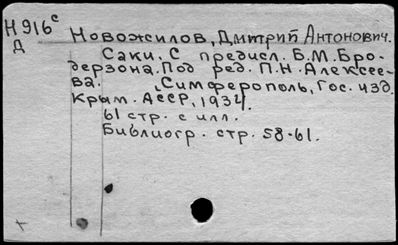 Н916с
Д
Новожилов, Дмитрий Антонович.
Саки. С предисл. Б.М. Бро-
дерзона. Под ред. П.Н. Алексее-
ва. Симферополь, Гос. изд.
Крым. АССР, 1934.
61 стр. с илл.
Библиогр. стр. 58-61.